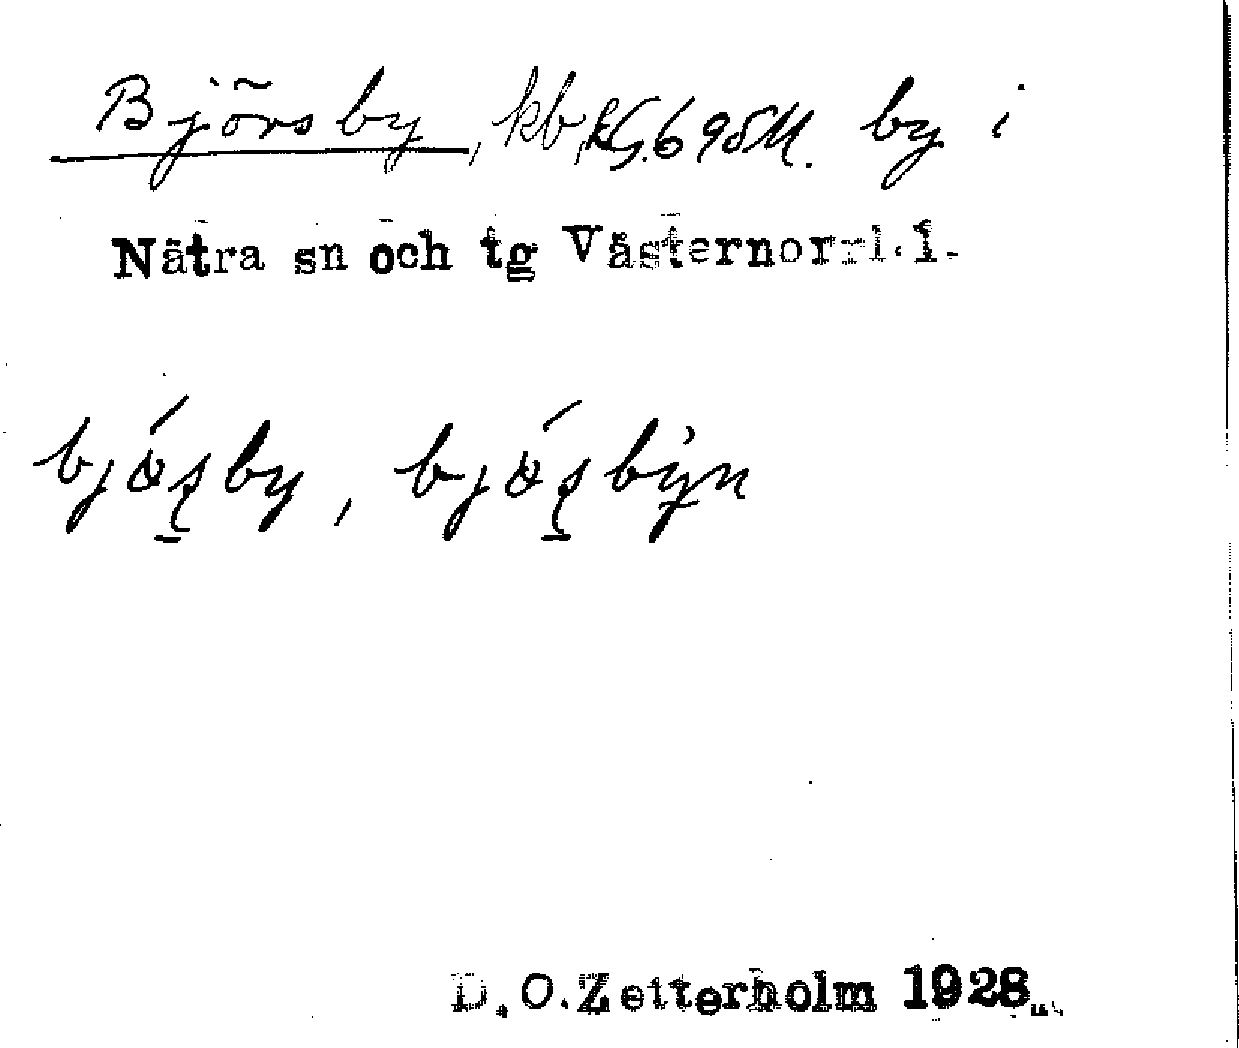 Björsby, kb, kG.695M. by i
Nätra sn och tg Västernorrl.l.
bjösby, bjösbýn
D.O.Zetterholm 1928